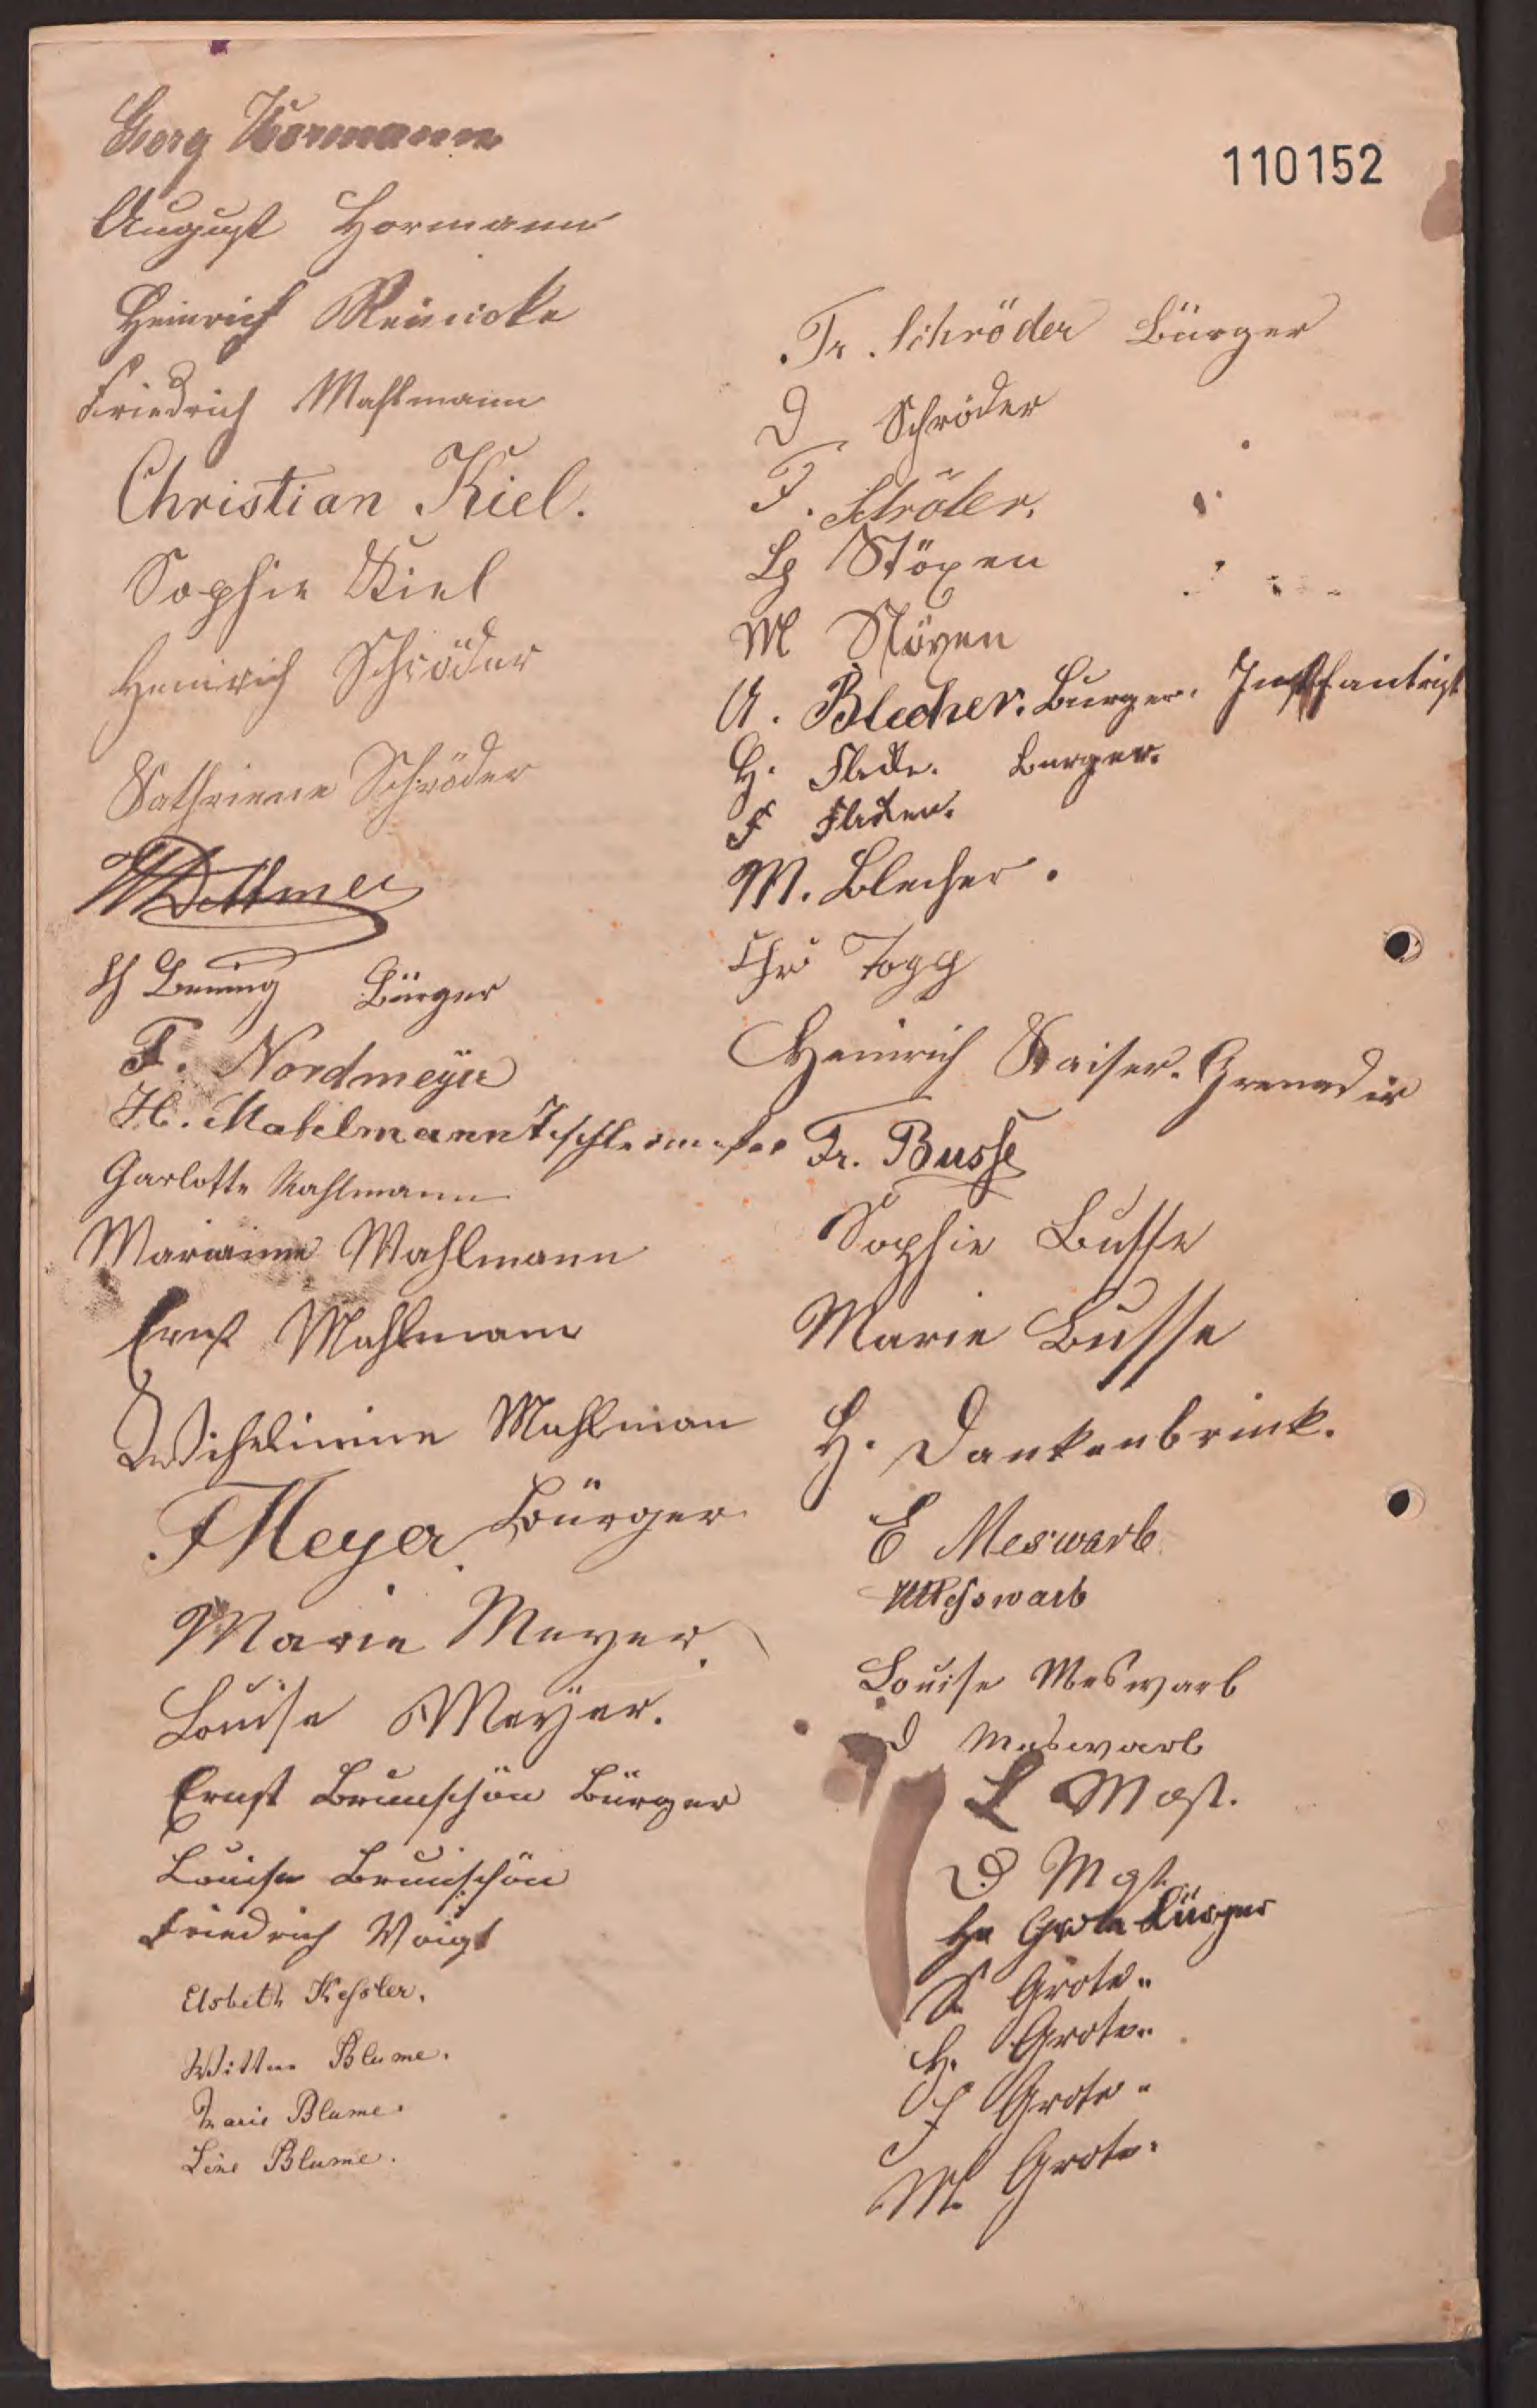 Georg Hormann
110152
August Hormann
Heinrich Reinicke
Friedrich Mahlmann
Christian Kiel.
Sophie Kiel
Heinrich Schröder
Kathriene Schröder
WDettmer
Bürger
F. Nordmeyer
H. Mahlmann Tischlermeister
Garlotte Mahlmann
Marianne Mahlmann
Ernst Mahlmann
Wihelmine Mahlman
F Meyer Bürger
Marie Meyer.
Louise Meÿer.
Ernst Brunschön Bürger
Louise Brunschön
Friedrich Voigt
Elsbeth Kessler.
Wittwe Blume.
Marie Blume.
Line Blume.
Fr. Schröder Bürger
D. Schröder
F. Schröder.
Stöxen
M Stöxen
A. Blecher. Burger. Inffantrist
H. Burger.
F
M. Blecher.
Chr Topp
Heinrich Kaiser. Grenadir
Fr. Busse
Sophie Busse
Marie Busse
H. Dankenbrink.
E Meswarb
Messwarb
Louise Meswarb
D Meswarb
L Mgst.
D Mgst.
Hn Grote Bürger
S. Grote „
H. Grote „
F Grote „
M. Grote.